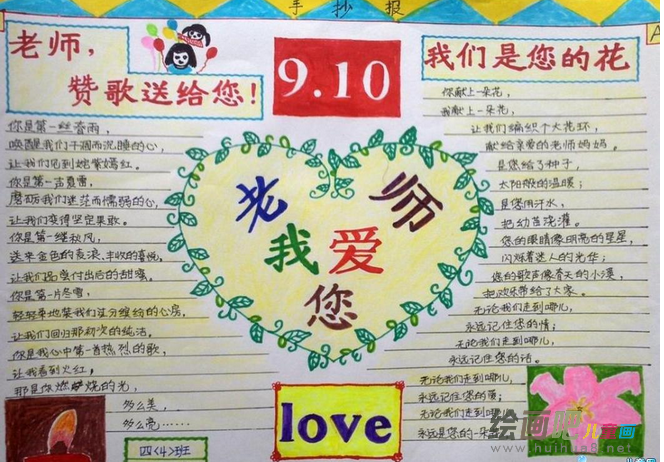 手抄报
老师，
赞歌送给您！
你是第一丝春雨，
唤醒我们干涸而沉睡的心，
让我们见到姹紫嫣红。
你是第一声夏雷，
磨砺我们迷茫而懦弱的心，
让我们变得坚定果敢。
你是第一缕秋风，
送来金色的麦浪，丰收的喜悦，
让我们品尝付出后的甜蜜。
你是第一片冬雪，
轻轻安抚我们缤纷的心房。
让我们回归那初次的纯洁。
你是我心中第一首热烈的歌，
让我看到火红，
那是你燃烧的光，
多么美，
多么亮……
四〈4〉班
9.10
老师
我爱
您
love
我们是您的花
你献上一朵花，
我献上一朵花，
让我们编织个大花环，
献给亲爱的老师妈妈。
是您给了种子，
太阳般的温暖；
是您用汗水，
把幼苗浇灌。
您的眼睛像明亮的星星，
闪烁着迷人的光华；
您的歌声像春天的小溪，
把欢乐带给了大家。
无论我们走到哪儿，
永远记住您的情；
无论我们走到哪儿，
永远记住您的话。
无论我们走到哪儿，
永远记住您的爱；
无论我们走到哪
永远是您的一朵
绘画吧
儿童画
www.huihua8.net